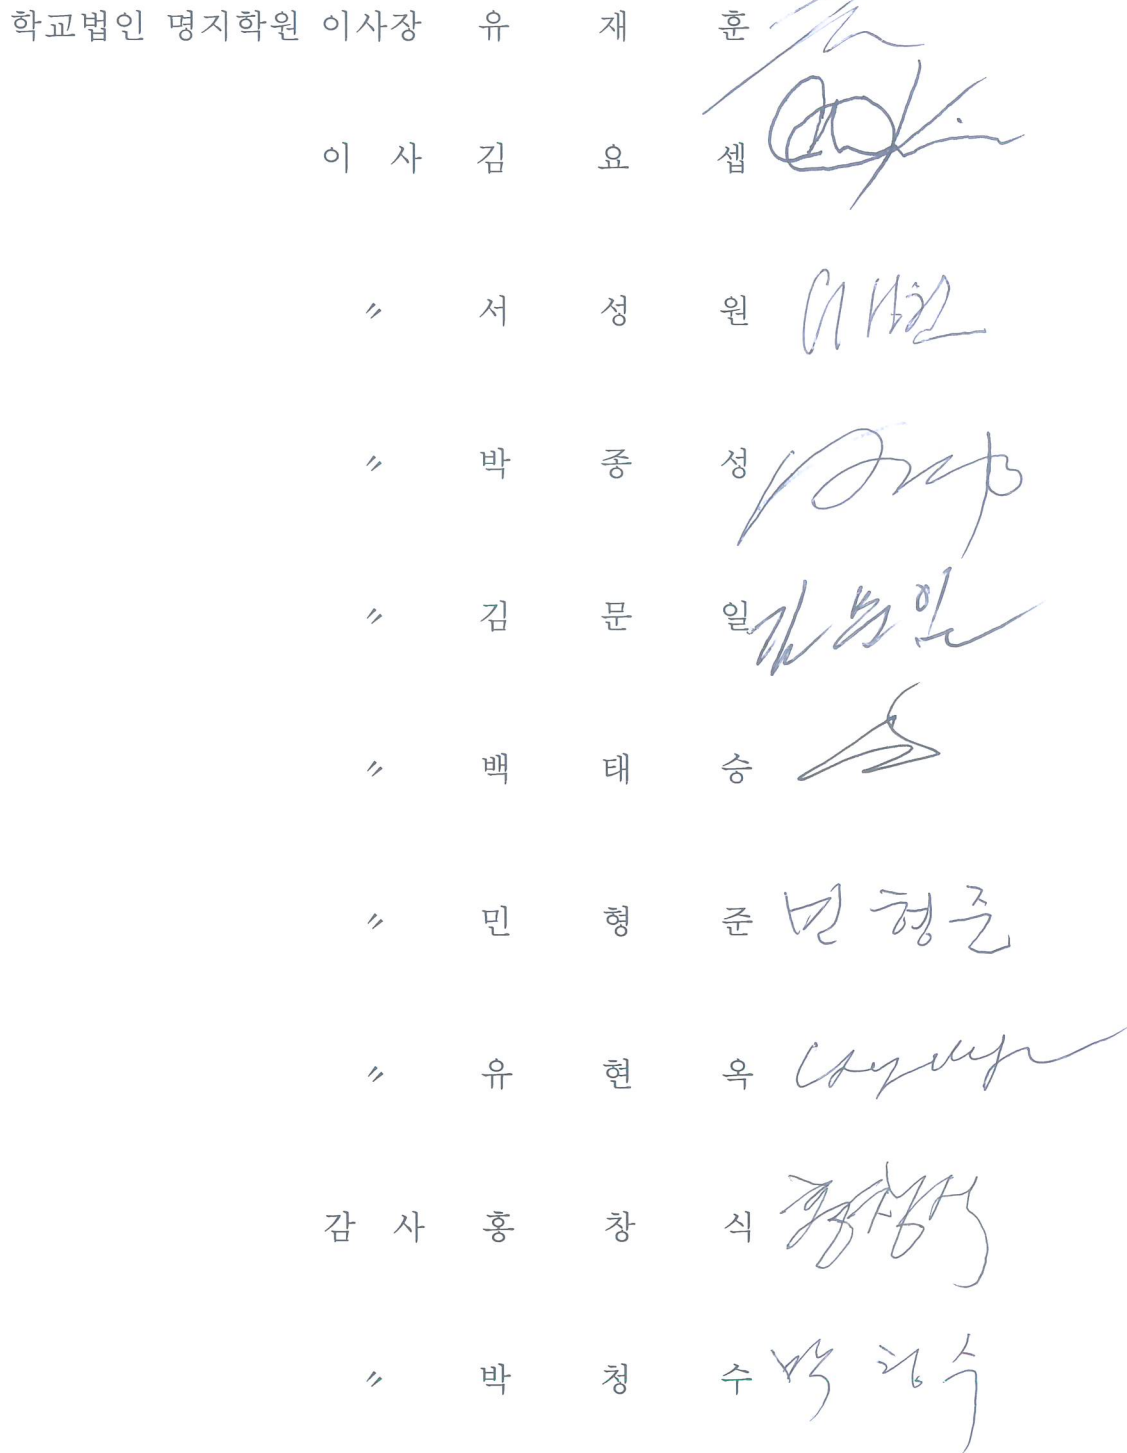 학교법인 명지학원 이사장 유 재 훈
이 사 김 요 셉
〃 서 성 원
〃 박 종 성
〃 김 문 일 김문일
〃 백 태 승
〃 민 형 준 민형준
〃 유 현 옥
감 사 홍 창 식 홍창식
〃 박 청 수 박청수